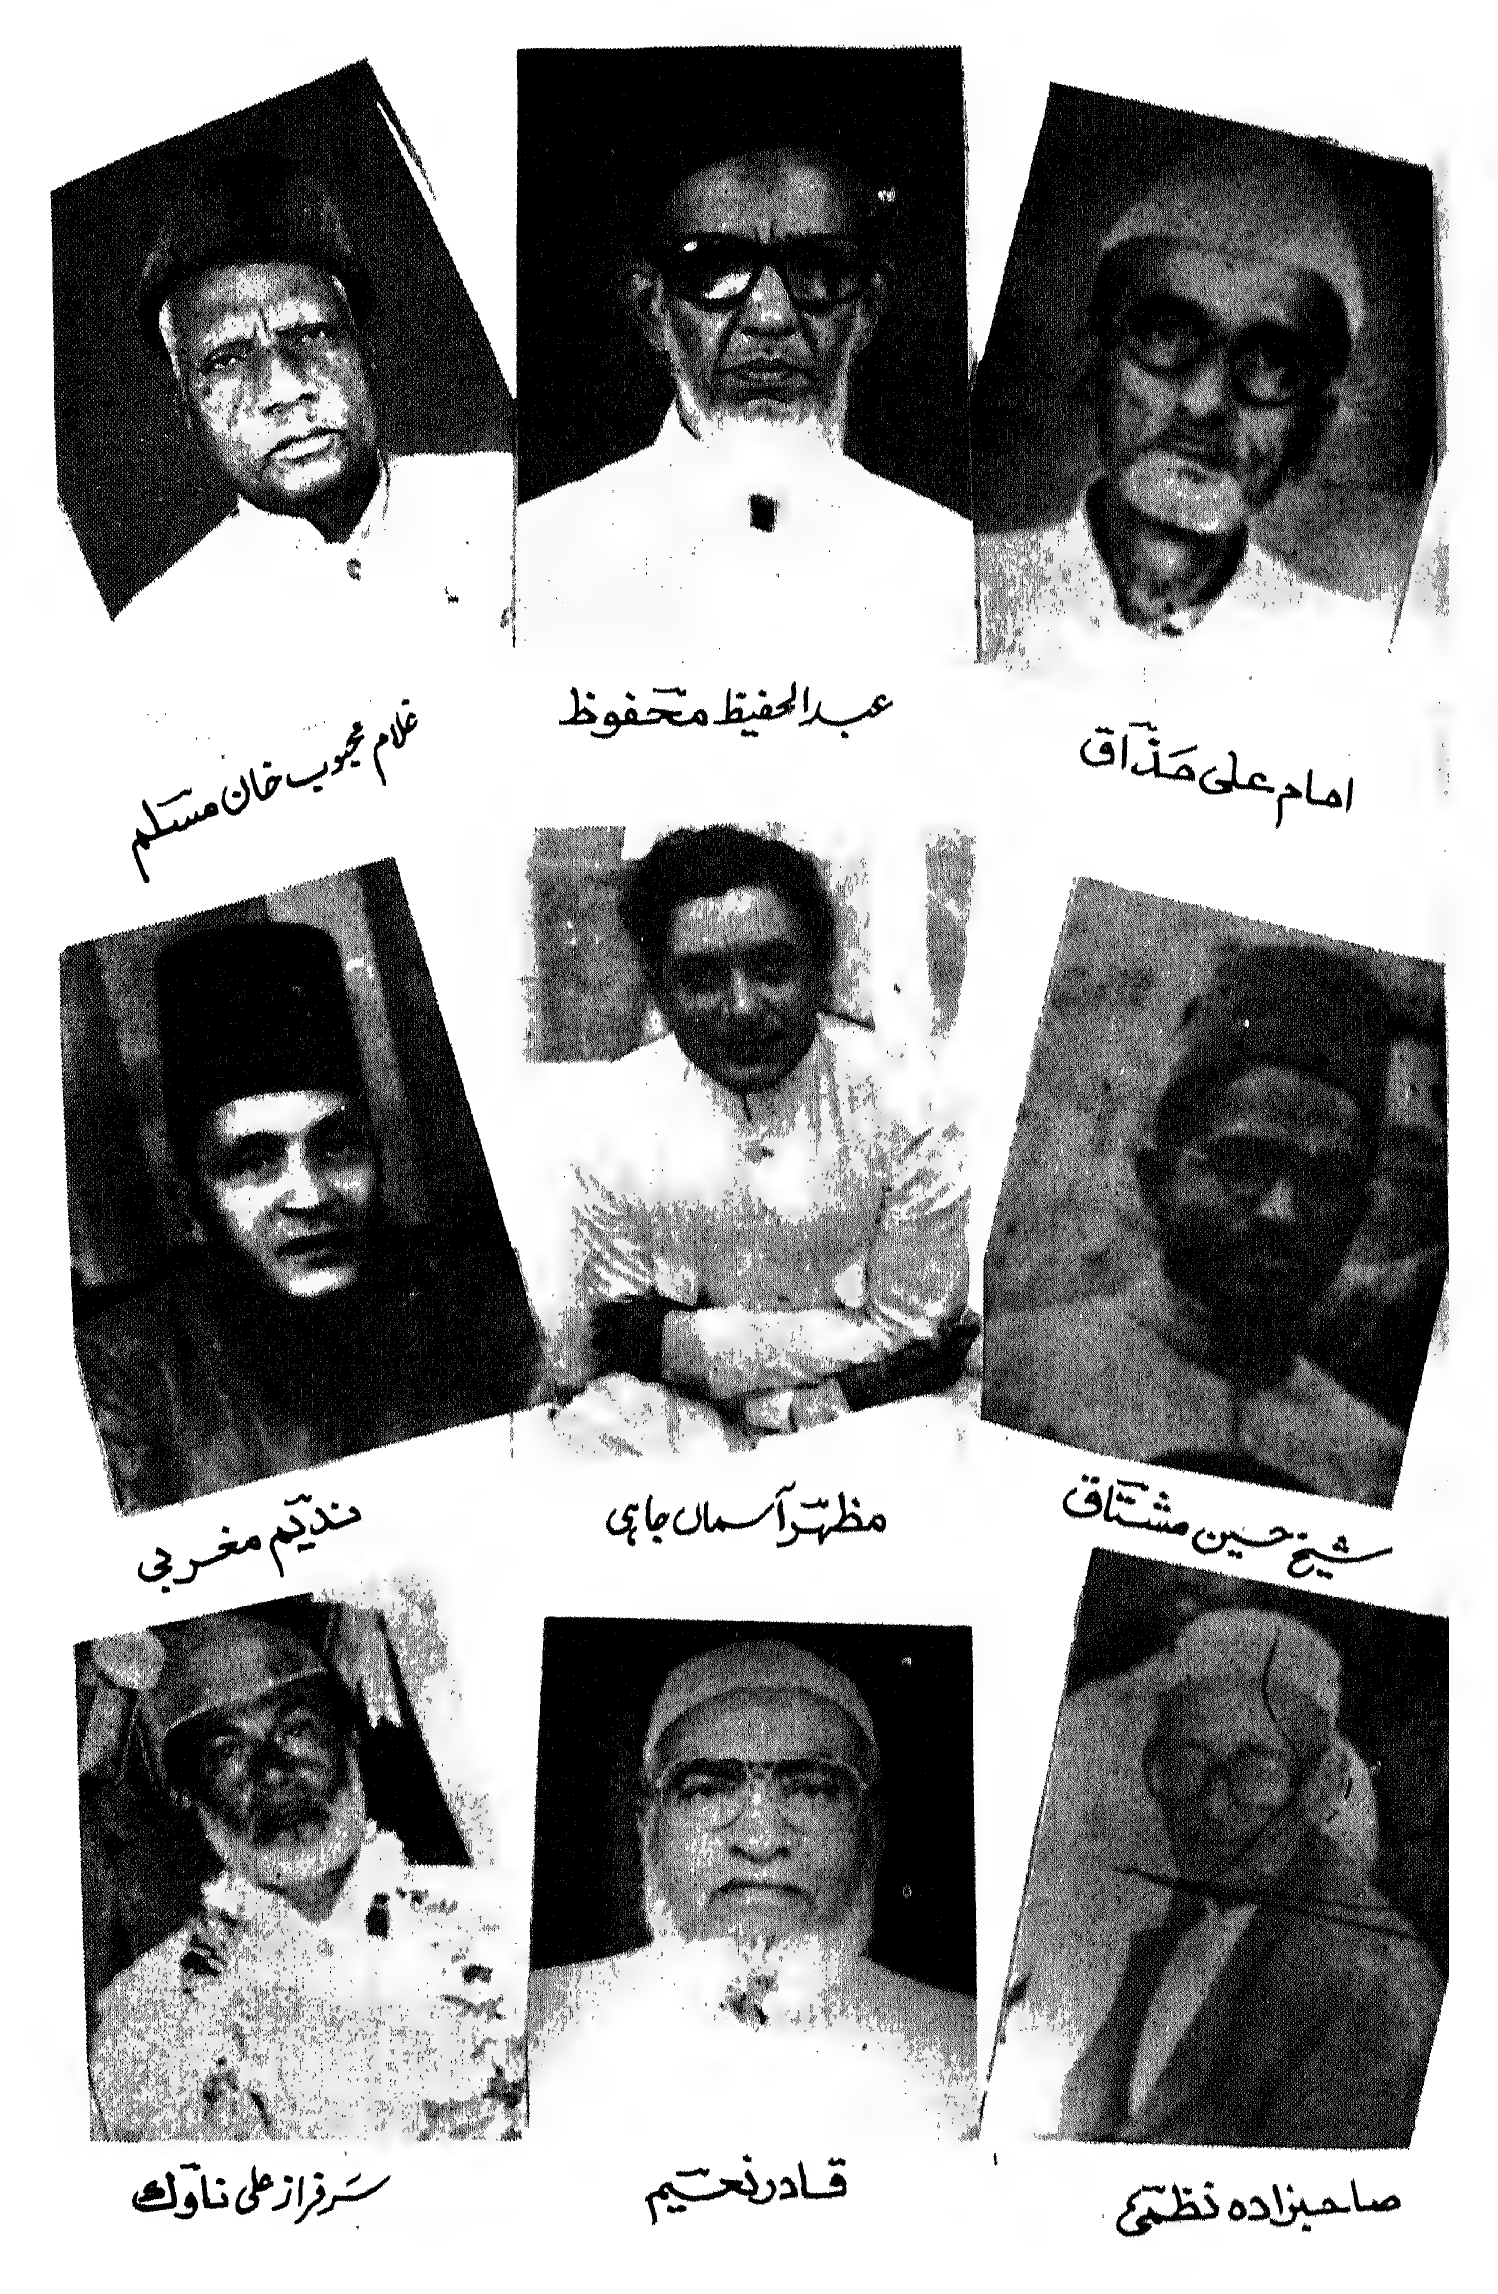 امام علی مَذاق
عبدالحفیظ محفوظ
غلام محبوب خان مسلم
شیخ حسین مشتاق
مظہر آسماں جاہی
ندیم مغربی
صاحبزادہ نظمی
قادر نعیم
سَرفراز علی ناوک